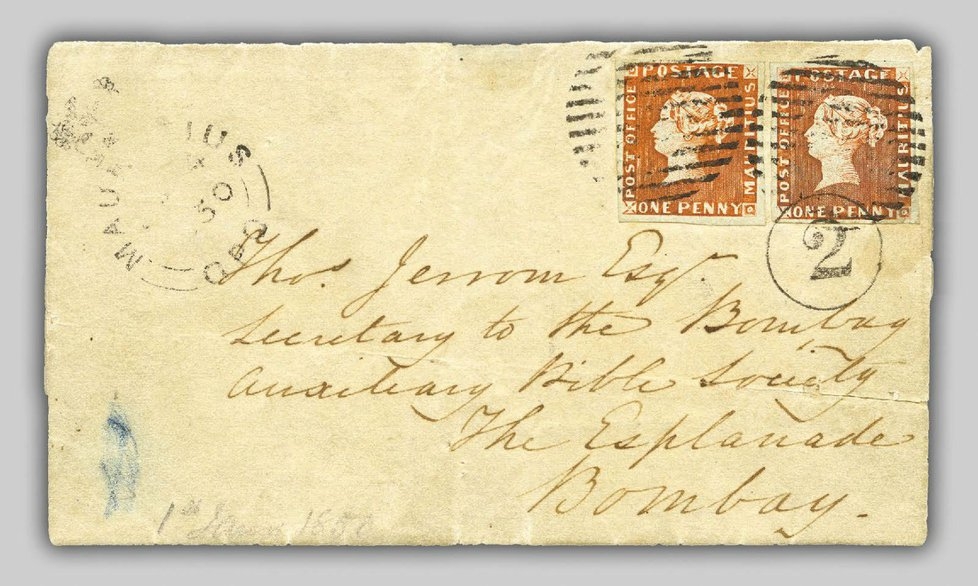 POSTAGE
POST OFFICE
MAURITIUS
ONE PENNY
POSTAGE
POST OFFICE
MAURITIUS
ONE PENNY
MAU IUS
50
GPO
2
Thos. Jerrom Esqr.
Secretary to the Bombay
Auxiliary Bible Society
The Esplanade
Bombay.